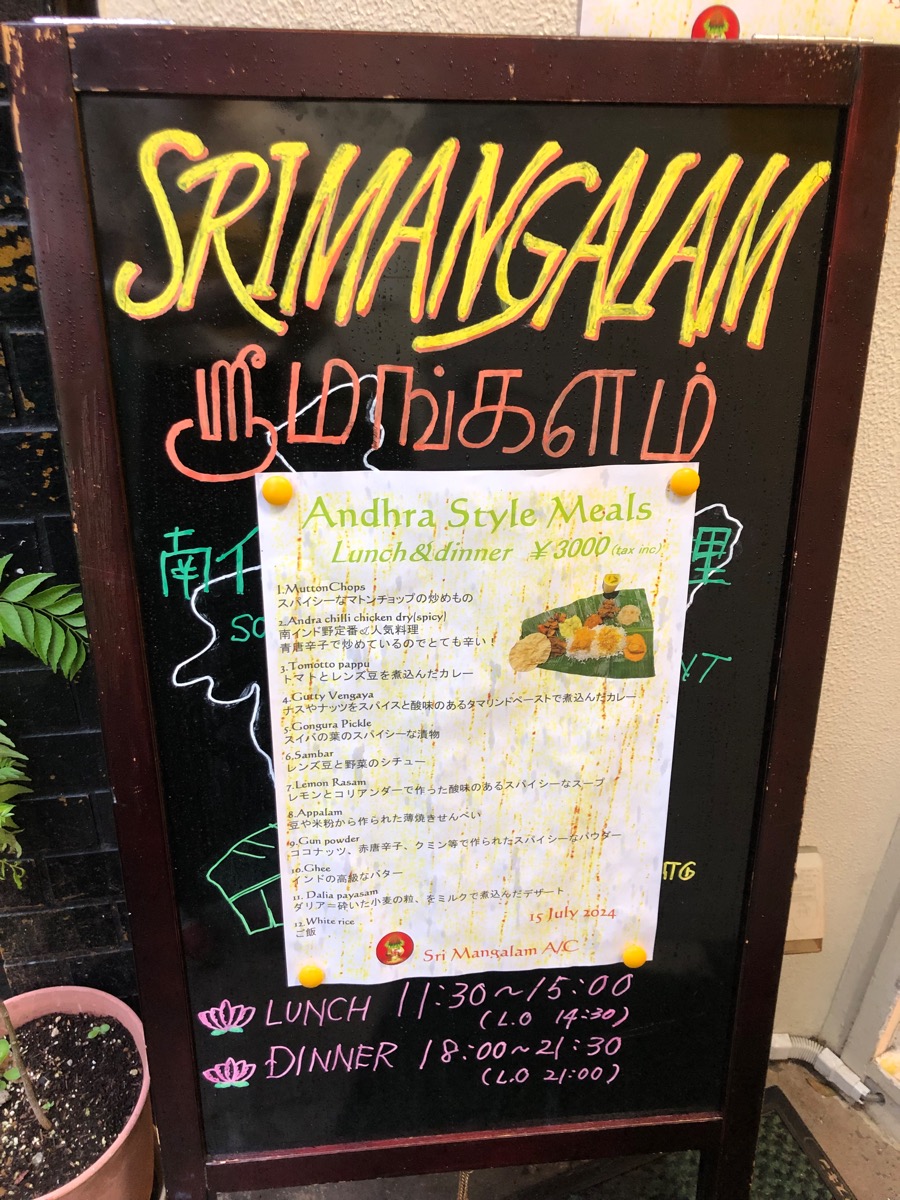 SRIMANGALAM
ஸ்ரீமங்களம்
Andhra Style Meals
Lunch&dinner ¥3000 (tax inc)
南イ
理
1.MuttonChops
スパイシーなマトンチョップの炒めもの
2.Andra chilli chicken dry(spicy)
南インド野定番の人気料理
青唐辛子で炒めているのでとても辛い！
3.Tomotto pappu
トマトとレンズ豆を煮込んだカレー
4.Gutty Vengaya
ナスやナッツをスパイスと酸味のあるタマリンドペーストで煮込んだカレー
5.Gongura Pickle
スイバの葉のスパイシーな漬物
6.Sambar
レンズ豆と野菜のシチュー
7.Lemon Rasam
レモンとコリアンダーで作った酸味のあるスパイシーなスープ
8.Appalam
豆や米粉から作られた薄焼きせんべい
9.Gun powder
ココナッツ、赤唐辛子、クミン等で作られたスパイシーなパウダー
10.Ghee
インドの高級なバター
11. Dalia payasam
ダリア＝砕いた小麦の粒、をミルクで煮込んだデザート
12.White rice
ご飯
15 July 2024
Sri Mangalam A/C
LUNCH 11:30～15:00
(L.O 14:30)
DINNER 18:00～21:30
(L.O 21:00)